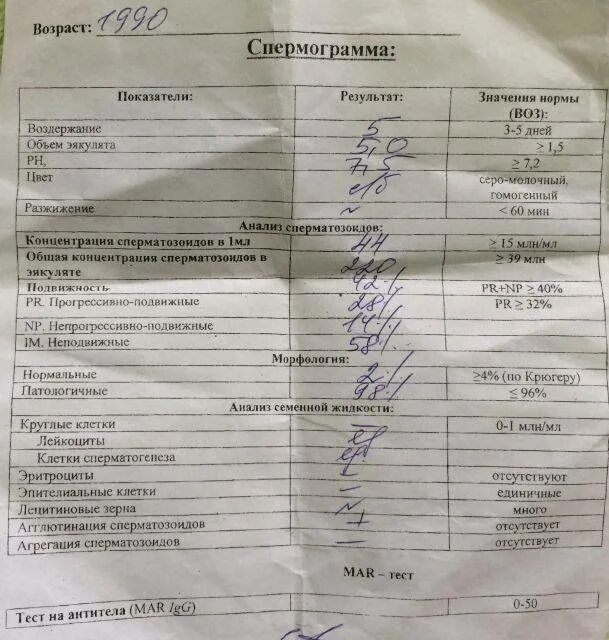 Возраст: 1990
Спермограмма:
Показатели: Результат: Значения нормы (ВОЗ):
Воздержание 5 3-5 дней
Объем эякулята 5,0 ≥ 1,5
PH, 7,5 ≥ 7,2
Цвет с/б серо-молочный, гомогенный
Разжижение ~ < 60 мин
Анализ сперматозоидов:
Концентрация сперматозоидов в 1мл 44 ≥ 15 млн/мл
Общая концентрация сперматозоидов в эякуляте 220 ≥ 39 млн
Подвижность 42% PR+NP ≥ 40%
PR. Прогрессивно-подвижные 28% PR ≥ 32%
NP. Непрогрессивно-подвижные 14%
IM. Неподвижные 58%
Морфология:
Нормальные 2% ≥4% (по Крюгеру)
Патологичные 98% ≤ 96%
Анализ семенной жидкости:
Круглые клетки — 0-1 млн/мл
Лейкоциты ед
Клетки сперматогенеза ед
Эритроциты – отсутствуют
Эпителиальные клетки — единичные
Лецитиновые зерна ~ много
Агглютинация сперматозоидов + отсутствует
Агрегация сперматозоидов — отсутствует
MAR – тест
Тест на антитела (MAR IgG) 0-50